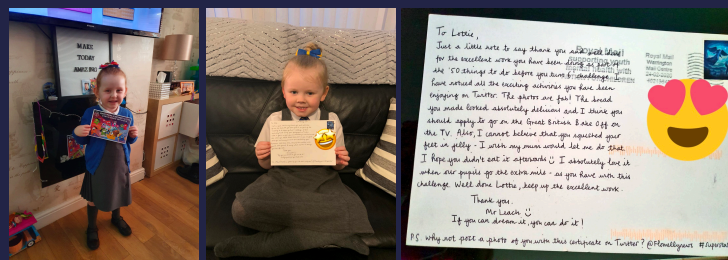 MAKE
TODAY
AMAZING
To Lottie,
Just a little note to say thank you and
for the excellent work you have been doing
the '50 things to do before you turn 6' challenge. I
have noticed all the exciting activities you have been
engaging on Twitter. The photos are fab! The bread
you made looked absolutely delicious and I think you
should apply to go on the Great British Bake Off on
the TV. Also, I cannot believe that you squished your
feet in jelly - I wish my mum would let me do that.
I hope you didn't eat it afterwards. I absolutely love it
when our pupils go the extra mile - as you have with this
challenge. Well done Lottie, keep up the excellent work.
Thank you.
Mr Leach
If you can dream it, you can do it!
P.S. Why not post a photo of you with this certificate on Twitter?
Royal Mail
supporting youth
health with
Royal Mail
Warrington
Mail Centre